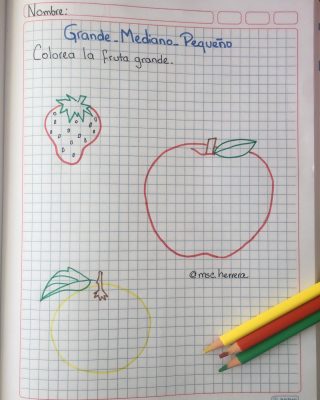 Nombre:
Grande_Mediano_Pequeño
Colorea la fruta grande.
@msc.herrera